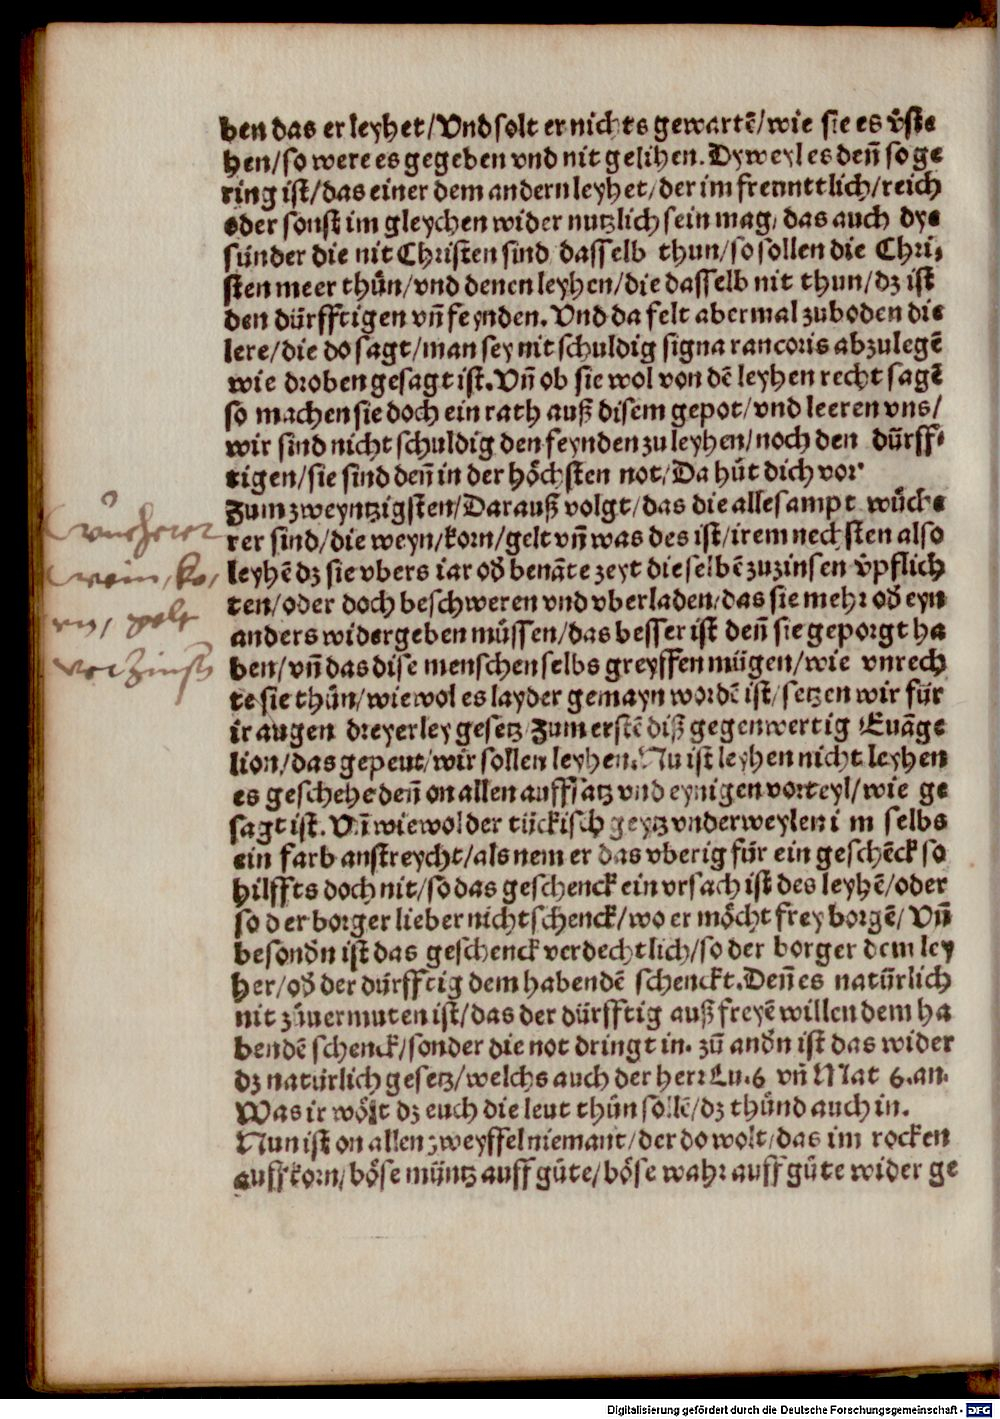 ben das er leyhet/Vnd solt er nichts gewartē/wie sie es v̄ste
hen/so were es gegeben vnd nit gelihen. Dyweyl es deñ so ge
ring ist/das einer dem andern leyhet/der im freunttlich/reich
oder sonst im gleychen wider nutzlich sein mag/das auch dye
sünder die nit Christen sind dasselb thun/so sollen die Chri⸗
sten meer thůn/vnd denen leyhen/die dasselb nit thun/dz ist
den dürfftigen vñ feynden. Vnd da felt abermal zuboden die
lere/die do sagt/man sey nit schuldig signa rancoris abzulegē
wie droben gesagt ist. Vñ ob sie wol von dē leyhen recht sagē
so machen sie doch ein rath auß disem gepot/vnd leeren vns/
wir sind nicht schuldig den feynden zu leyhen/noch den dürff⸗
tigen/sie sind deñ in der höchsten not/Da hůt dich vor
Zum zweyntzigsten/Darauß volgt/das die allesampt wůche
rer sind/die weyn/korn/gelt vñ was des ist/irem nechsten also
leyhē dz sie vbers iar oď benāte zeyt die selbē zuzinsen v̄pflich
ten/oder doch beschweren vnd vberladen/das sie mehr oď eyn
anders widergeben müssen/das besser ist deñ sie geporgt ha
ben/vñ das dise menschen selbs greyffen mügen/wie vnrech
te sie thůn/wiewol es layder gemayn wordē ist/setzen wir für
ir augen dreyerley gesetz/Zum erstē diß gegenwertig Euāge
lion/das gepeut/wir sollen leyhen. Nu ist leyhen nicht leyhen
es geschehe deñ on allen auffsatz vnd eynigen vorteyl/wie ge
sagt ist. Vñ wiewol der tückisch geytz vnderweylen i m selbs
ein farb anstreycht/als nem er das vberig für ein geschēck so
hilffts doch nit/so das geschenck ein vrsach ist des leyhē/oder
so der borger lieber nicht schenck/wo er möcht frey borgē/Vñ
besonďn ist das geschenck verdechtlich/so der borger dem ley
her/oď der dürfftig dem habendē schenckt. Deñ es natürlich
nit zůuermuten ist/das der dürfftig auß freyē willen dem ha
bendē schenck/sonder die not dringt in. zů anďn ist das wider
dz natürlich gesetz/welchs auch der herr Lu. 6 vñ Mat 6. an.
Was ir wölt dz euch die leut thůn sollē/dz thůnd auch in.
Nun ist on allen zweyffel niemant/der do wolt/das im rocken
auff korn/böse müntz auff gůte/böse wahr auff gůte wider ge
wucherer
wein, ko,
rn, gelt
verzinsen
Digitalisierung gefördert durch die Deutsche Forschungsgemeinschaft - DFG